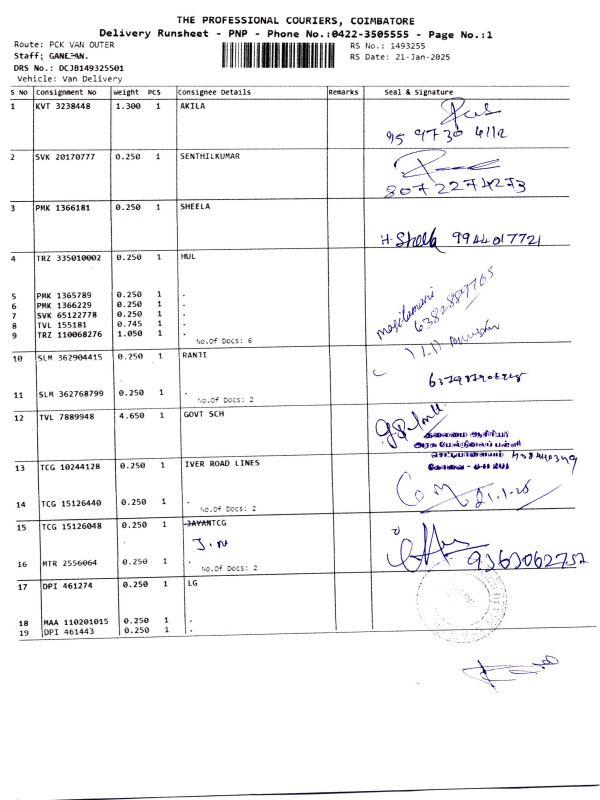 THE PROFESSIONAL COURIERS, COIMBATORE
Delivery Runsheet - PNP - Phone No.:0422-3505555 - Page No.:1
Route: PCK VAN OUTER
RS No.: 1493255
Staff: GANESAN.
RS Date: 21-Jan-2025
DRS No.: DCJB149325501
Vehicle: Van Delivery
S No Consignment No Weight PCS Consignee Details Remarks Seal & Signature
1 KVT 3238448 1.300 1 AKILA
95 9730 4112
2 SVK 20170777 0.250 1 SENTHILKUMAR
8072274273
3 PMK 1366181 0.250 1 SHEELA
H. Sheela 9944017721
4 TRZ 335010002 0.250 1 HUL
5 PMK 1365789 0.250 1 .
6 PMK 1366229 0.250 1 .
7 SVK 65122778 0.250 1 .
8 TVL 155181 0.745 1 .
9 TRZ 110068276 1.050 1 .
No.Of Docs: 6
10 SLM 362904415 0.250 1 RANJI
11 SLM 362768799 0.250 1 .
No.Of Docs: 2
12 TVL 7889948 4.650 1 GOVT SCH
தலைமை ஆசிரியர்
அரசு மேல்நிலைப் பள்ளி
கோவை - 641 201
13 TCG 10244128 0.250 1 IVER ROAD LINES
14 TCG 15126440 0.250 1 .
No.Of Docs: 2
21.1.25
15 TCG 15126048 0.250 1 JAYANTCG
J.N
16 MTR 2556064 0.250 1 .
No.Of Docs: 2
9363062752
17 DPI 461274 0.250 1 LG
18 MAA 110201015 0.250 1 .
19 DPI 461443 0.250 1 .